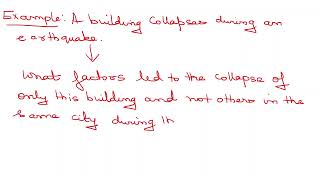 Example: A building collapses during an
earthquake.
What factors led to the collapse of
only this building and not others in the
same city during th